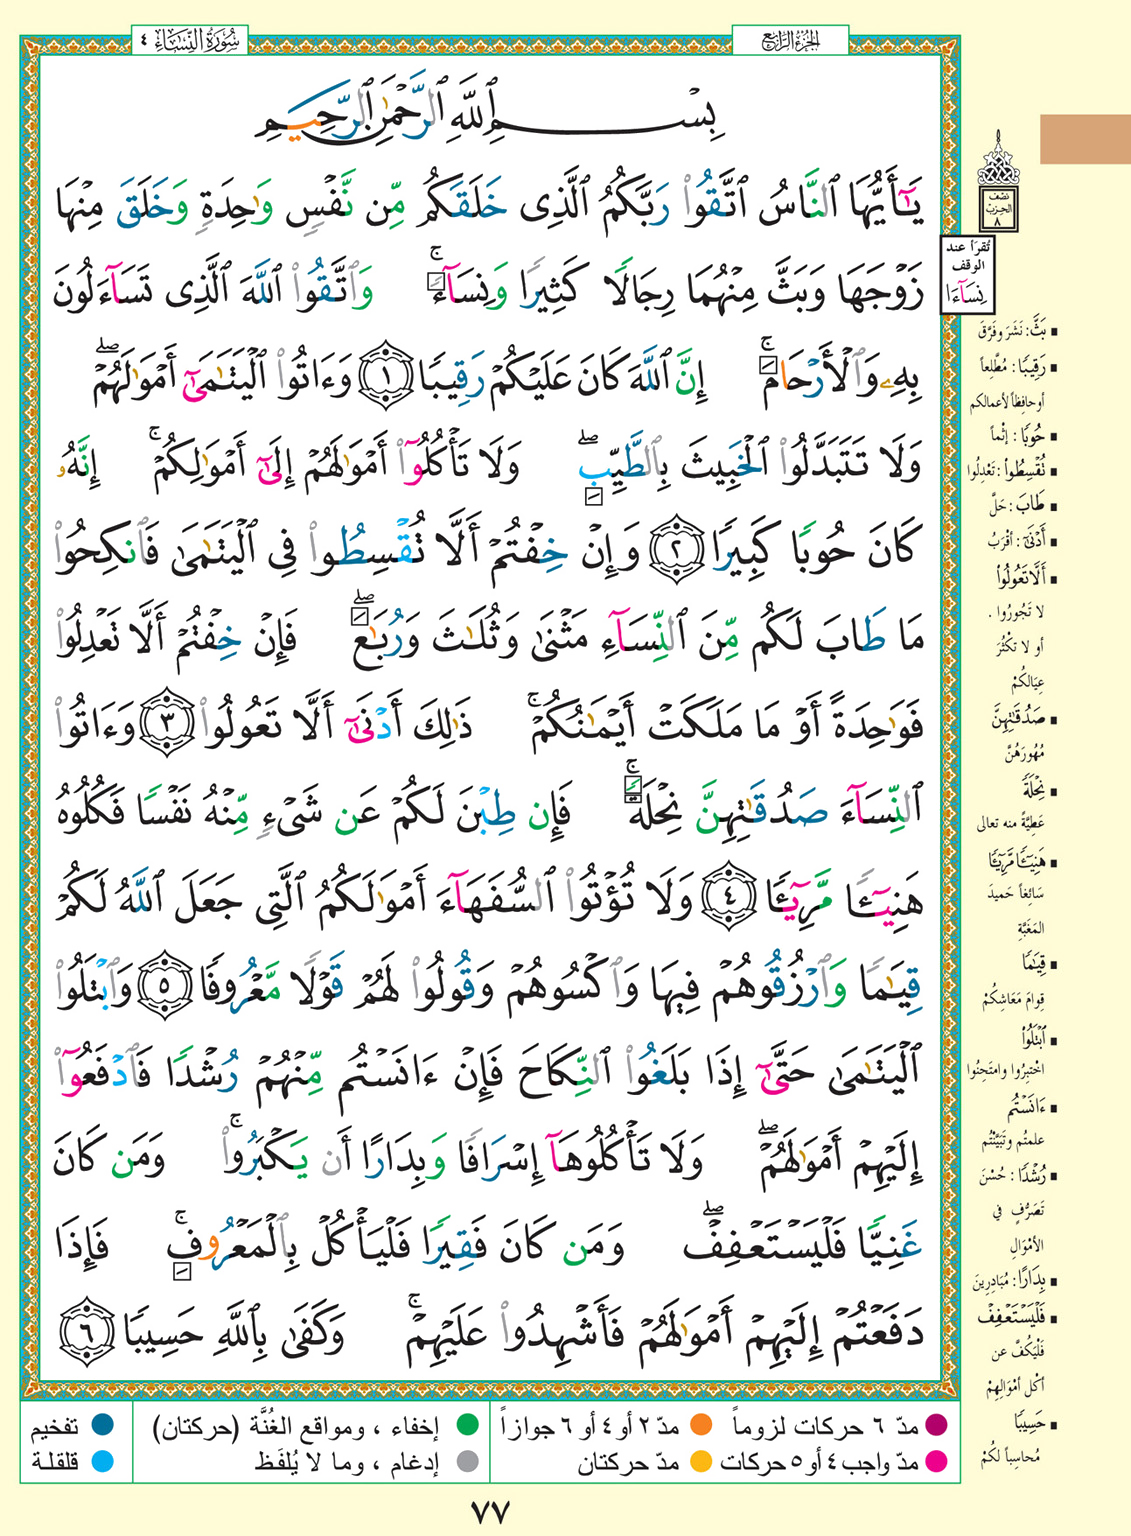 سُورَةُ النِّسَاءِ ٤
الجُزءُ الرَّابِع
بِسْمِ ٱللَّهِ ٱلرَّحْمَٰنِ ٱلرَّحِيمِ
يَٰٓأَيُّهَا ٱلنَّاسُ ٱتَّقُوا۟ رَبَّكُمُ ٱلَّذِى خَلَقَكُم مِّن نَّفْسٍ وَٰحِدَةٍ وَخَلَقَ مِنْهَا
زَوْجَهَا وَبَثَّ مِنْهُمَا رِجَالًا كَثِيرًا وَنِسَآءً ۚ وَٱتَّقُوا۟ ٱللَّهَ ٱلَّذِى تَسَآءَلُونَ
بِهِۦ وَٱلْأَرْحَامَ ۚ إِنَّ ٱللَّهَ كَانَ عَلَيْكُمْ رَقِيبًا ١ وَءَاتُوا۟ ٱلْيَتَٰمَىٰٓ أَمْوَٰلَهُمْ ۖ
وَلَا تَتَبَدَّلُوا۟ ٱلْخَبِيثَ بِٱلطَّيِّبِ ۖ وَلَا تَأْكُلُوٓا۟ أَمْوَٰلَهُمْ إِلَىٰٓ أَمْوَٰلِكُمْ ۚ إِنَّهُۥ
كَانَ حُوبًا كَبِيرًا ٢ وَإِنْ خِفْتُمْ أَلَّا تُقْسِطُوا۟ فِى ٱلْيَتَٰمَىٰ فَٱنكِحُوا۟
مَا طَابَ لَكُم مِّنَ ٱلنِّسَآءِ مَثْنَىٰ وَثُلَٰثَ وَرُبَٰعَ ۖ فَإِنْ خِفْتُمْ أَلَّا تَعْدِلُوا۟
فَوَٰحِدَةً أَوْ مَا مَلَكَتْ أَيْمَٰنُكُمْ ۚ ذَٰلِكَ أَدْنَىٰٓ أَلَّا تَعُولُوا۟ ٣ وَءَاتُوا۟
ٱلنِّسَآءَ صَدُقَٰتِهِنَّ نِحْلَةً ۚ فَإِن طِبْنَ لَكُمْ عَن شَىْءٍ مِّنْهُ نَفْسًا فَكُلُوهُ
هَنِيٓـًٔا مَّرِيٓـًٔا ٤ وَلَا تُؤْتُوا۟ ٱلسُّفَهَآءَ أَمْوَٰلَكُمُ ٱلَّتِى جَعَلَ ٱللَّهُ لَكُمْ
قِيَٰمًا وَٱرْزُقُوهُمْ فِيهَا وَٱكْسُوهُمْ وَقُولُوا۟ لَهُمْ قَوْلًا مَّعْرُوفًا ٥ وَٱبْتَلُوا۟
ٱلْيَتَٰمَىٰ حَتَّىٰٓ إِذَا بَلَغُوا۟ ٱلنِّكَاحَ فَإِنْ ءَانَسْتُم مِّنْهُمْ رُشْدًا فَٱدْفَعُوٓا۟
إِلَيْهِمْ أَمْوَٰلَهُمْ ۖ وَلَا تَأْكُلُوهَآ إِسْرَافًا وَبِدَارًا أَن يَكْبَرُوا۟ ۚ وَمَن كَانَ
غَنِيًّا فَلْيَسْتَعْفِفْ ۖ وَمَن كَانَ فَقِيرًا فَلْيَأْكُلْ بِٱلْمَعْرُوفِ ۚ فَإِذَا
دَفَعْتُمْ إِلَيْهِمْ أَمْوَٰلَهُمْ فَأَشْهِدُوا۟ عَلَيْهِمْ ۚ وَكَفَىٰ بِٱللَّهِ حَسِيبًا ٦
نصف
الحزب
٨
تُقرَأ عند
الوقف
نِسَآءَا
بَثَّ: نَشَرَ وفَرَّقَ
رَقِيبًا: مُطَّلِعاً
أو حافِظاً لأعمالكم
حُوبًا: إثْماً
تُقْسِطُوا۟: تَعْدِلُوا
طَابَ: حَلَّ
أَدْنَىٰٓ: أقْرَبُ
أَلَّا تَعُولُوا۟
لا تَجُورُوا.
أو لا تَكْثُرَ
عِيَالكُمْ
صَدُقَٰتِهِنَّ
مُهُورَهُنَّ
نِحْلَةً
عَطِيَّةً منه تعالى
هَنِيٓـًٔا مَّرِيٓـًٔا
سَائِغاً حَميدَ
المَغَبَّةِ
قِيَٰمًا
قِوامَ مَعَاشِكُمْ
ٱبْتَلُوا۟
اختبِرُوا وامتَحِنُوا
ءَانَسْتُم
علمتُم وتَبَيَّنْتُم
رُشْدًا: حُسْنَ
تَصَرُّفٍ في
الأمْوَالِ
بِدَارًا: مُبَادِرِينَ
فَلْيَسْتَعْفِفْ
فَلْيَكُفَّ عن
أكْلِ أمْوَالِهِمْ
حَسِيبًا
مُحاسِباً لكُمْ
مدّ ٦ حركات لزوماً
مدّ ٢ أو ٤ أو ٦ جوازاً
إخفاء ، ومواقع الغُنَّة (حركتان)
تفخيم
مدّ واجب ٤ أو ٥ حركات
مدّ حركتان
إدغام ، وما لا يُلفَظ
قلقلة
٧٧